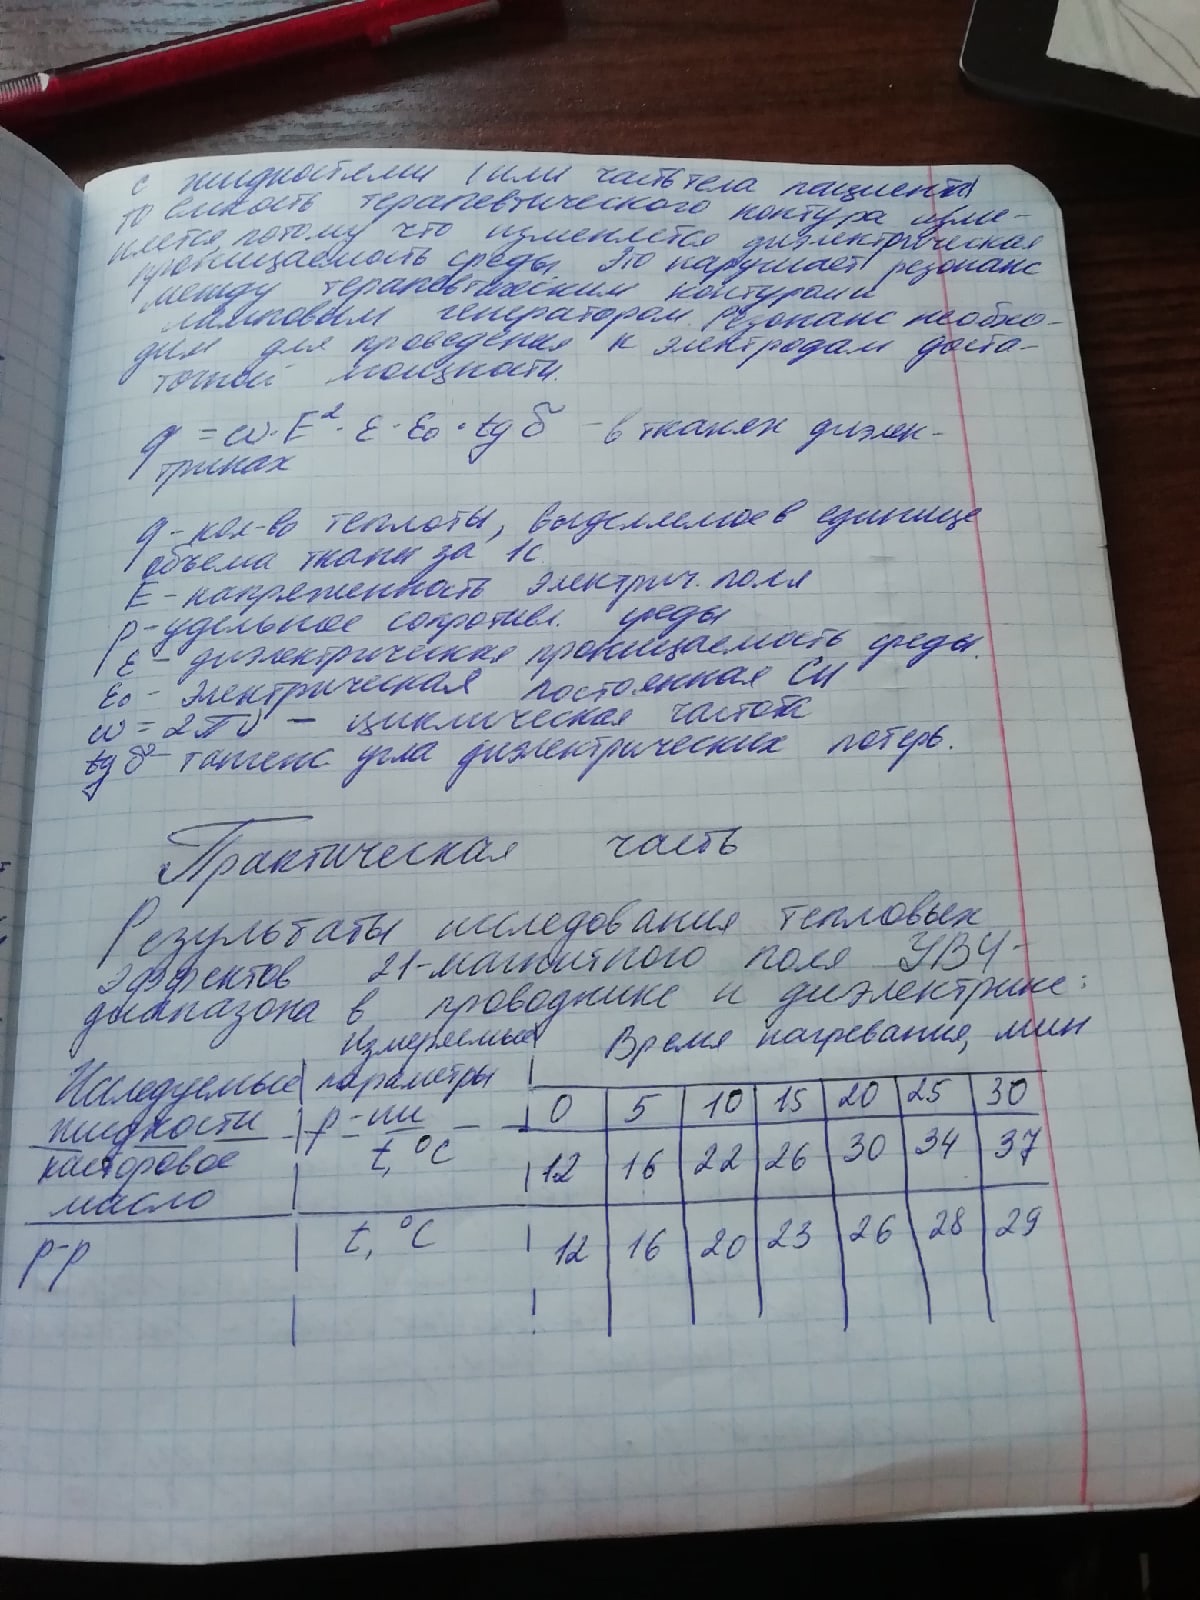 с жидкостями (или часть тела пациента)
то емкость терапевтического контура изме-
няется потому что изменяется диэлектрическая
проницаемость среды. Это нарушает резонанс
между терапевтическим контуром и
ламповым генератором. Резонанс необхо-
дим для проведения к электродам доста-
точной мощности.
q = ω·E²·ε·ε₀·tgδ - в тканях диэлек-
триках
q - кол-во теплоты, выделяемое в единице
объема ткани за 1с
E - напряженность электрич. поля
ρ - удельное сопротивл. среды
ε - диэлектрическая проницаемость среды.
ε₀ - электрическая постоянная СИ
ω = 2πν - циклическая частота
tgδ - тангенс угла диэлектрических потерь.
Практическая часть
Результаты исследования тепловых
эффектов эл-магнитного поля УВЧ-
диапазона в проводнике и диэлектрике:
Исследуемые жидкости | Измеряемые параметры | Время нагревания, мин
0 5 10 15 20 25 30
касторовое масло t, °C 12 16 22 26 30 34 37
р-р t, °C 12 16 20 23 26 28 29